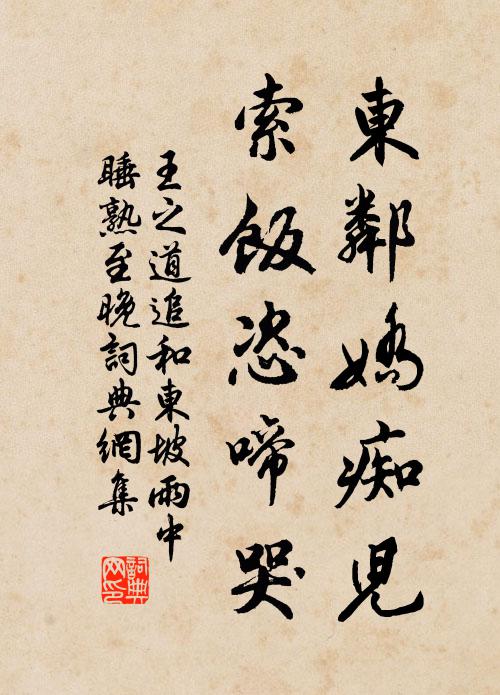 東鄰嬌痴兒
索飯恣啼哭
王之道追和東坡雨中
睡熟至晚詞典網集
詞典
网印